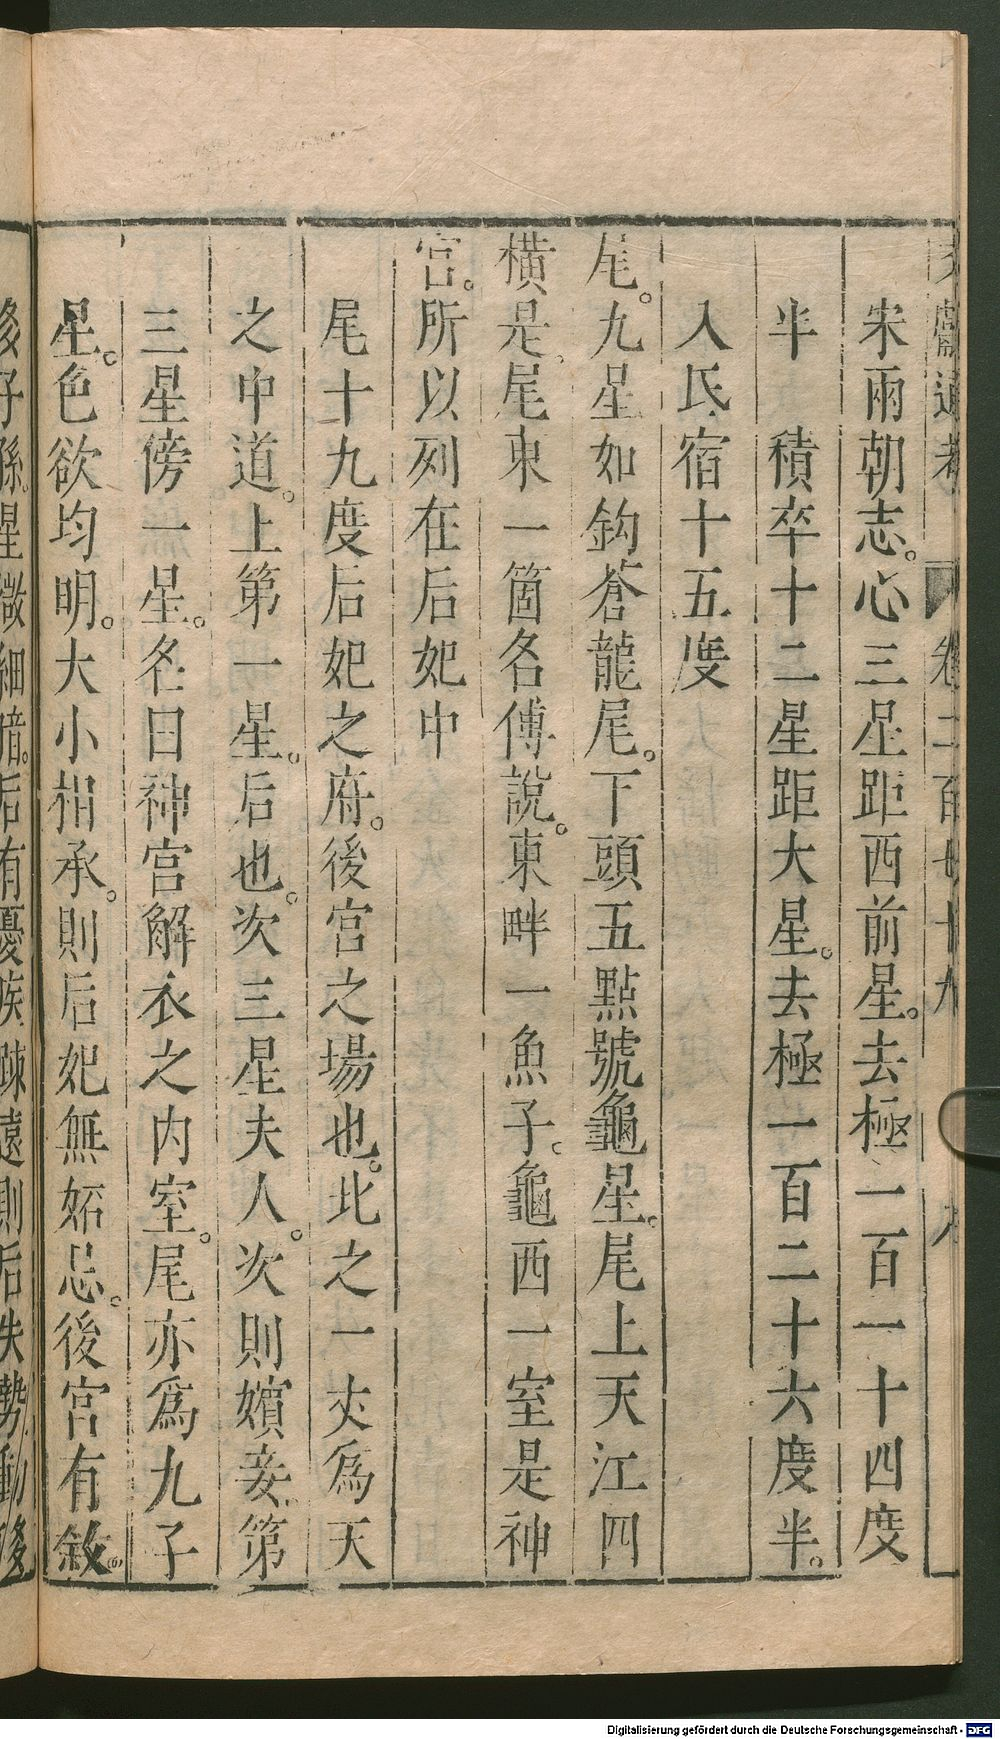 文獻通考 卷二百七十九 八
宋兩朝志。心三星距西前星。去極一百一十四度
半 積卒十二星距大星。去極一百二十六度半。
入氐宿十五度
尾。九星如鈎蒼龍尾。下頭五點號龜星。尾上天江四
橫是。尾東一箇名傅說。東畔一魚子。龜西一室是神
宮。所以列在后妃中
尾十九度后妃之府。後宮之場也。北之一夾爲天
之中道。上第一星。后也。次三星夫人。次則嬪妾。第
三星傍一星。名曰神宮解衣之內室。尾亦爲九子
星。色欲均明。大小相承。則后妃無妬忌。後宮有敘。
後子孫。星微細暗。后有憂疾疎遠則后失勢動
Digitalisierung gefördert durch die Deutsche Forschungsgemeinschaft - DFG